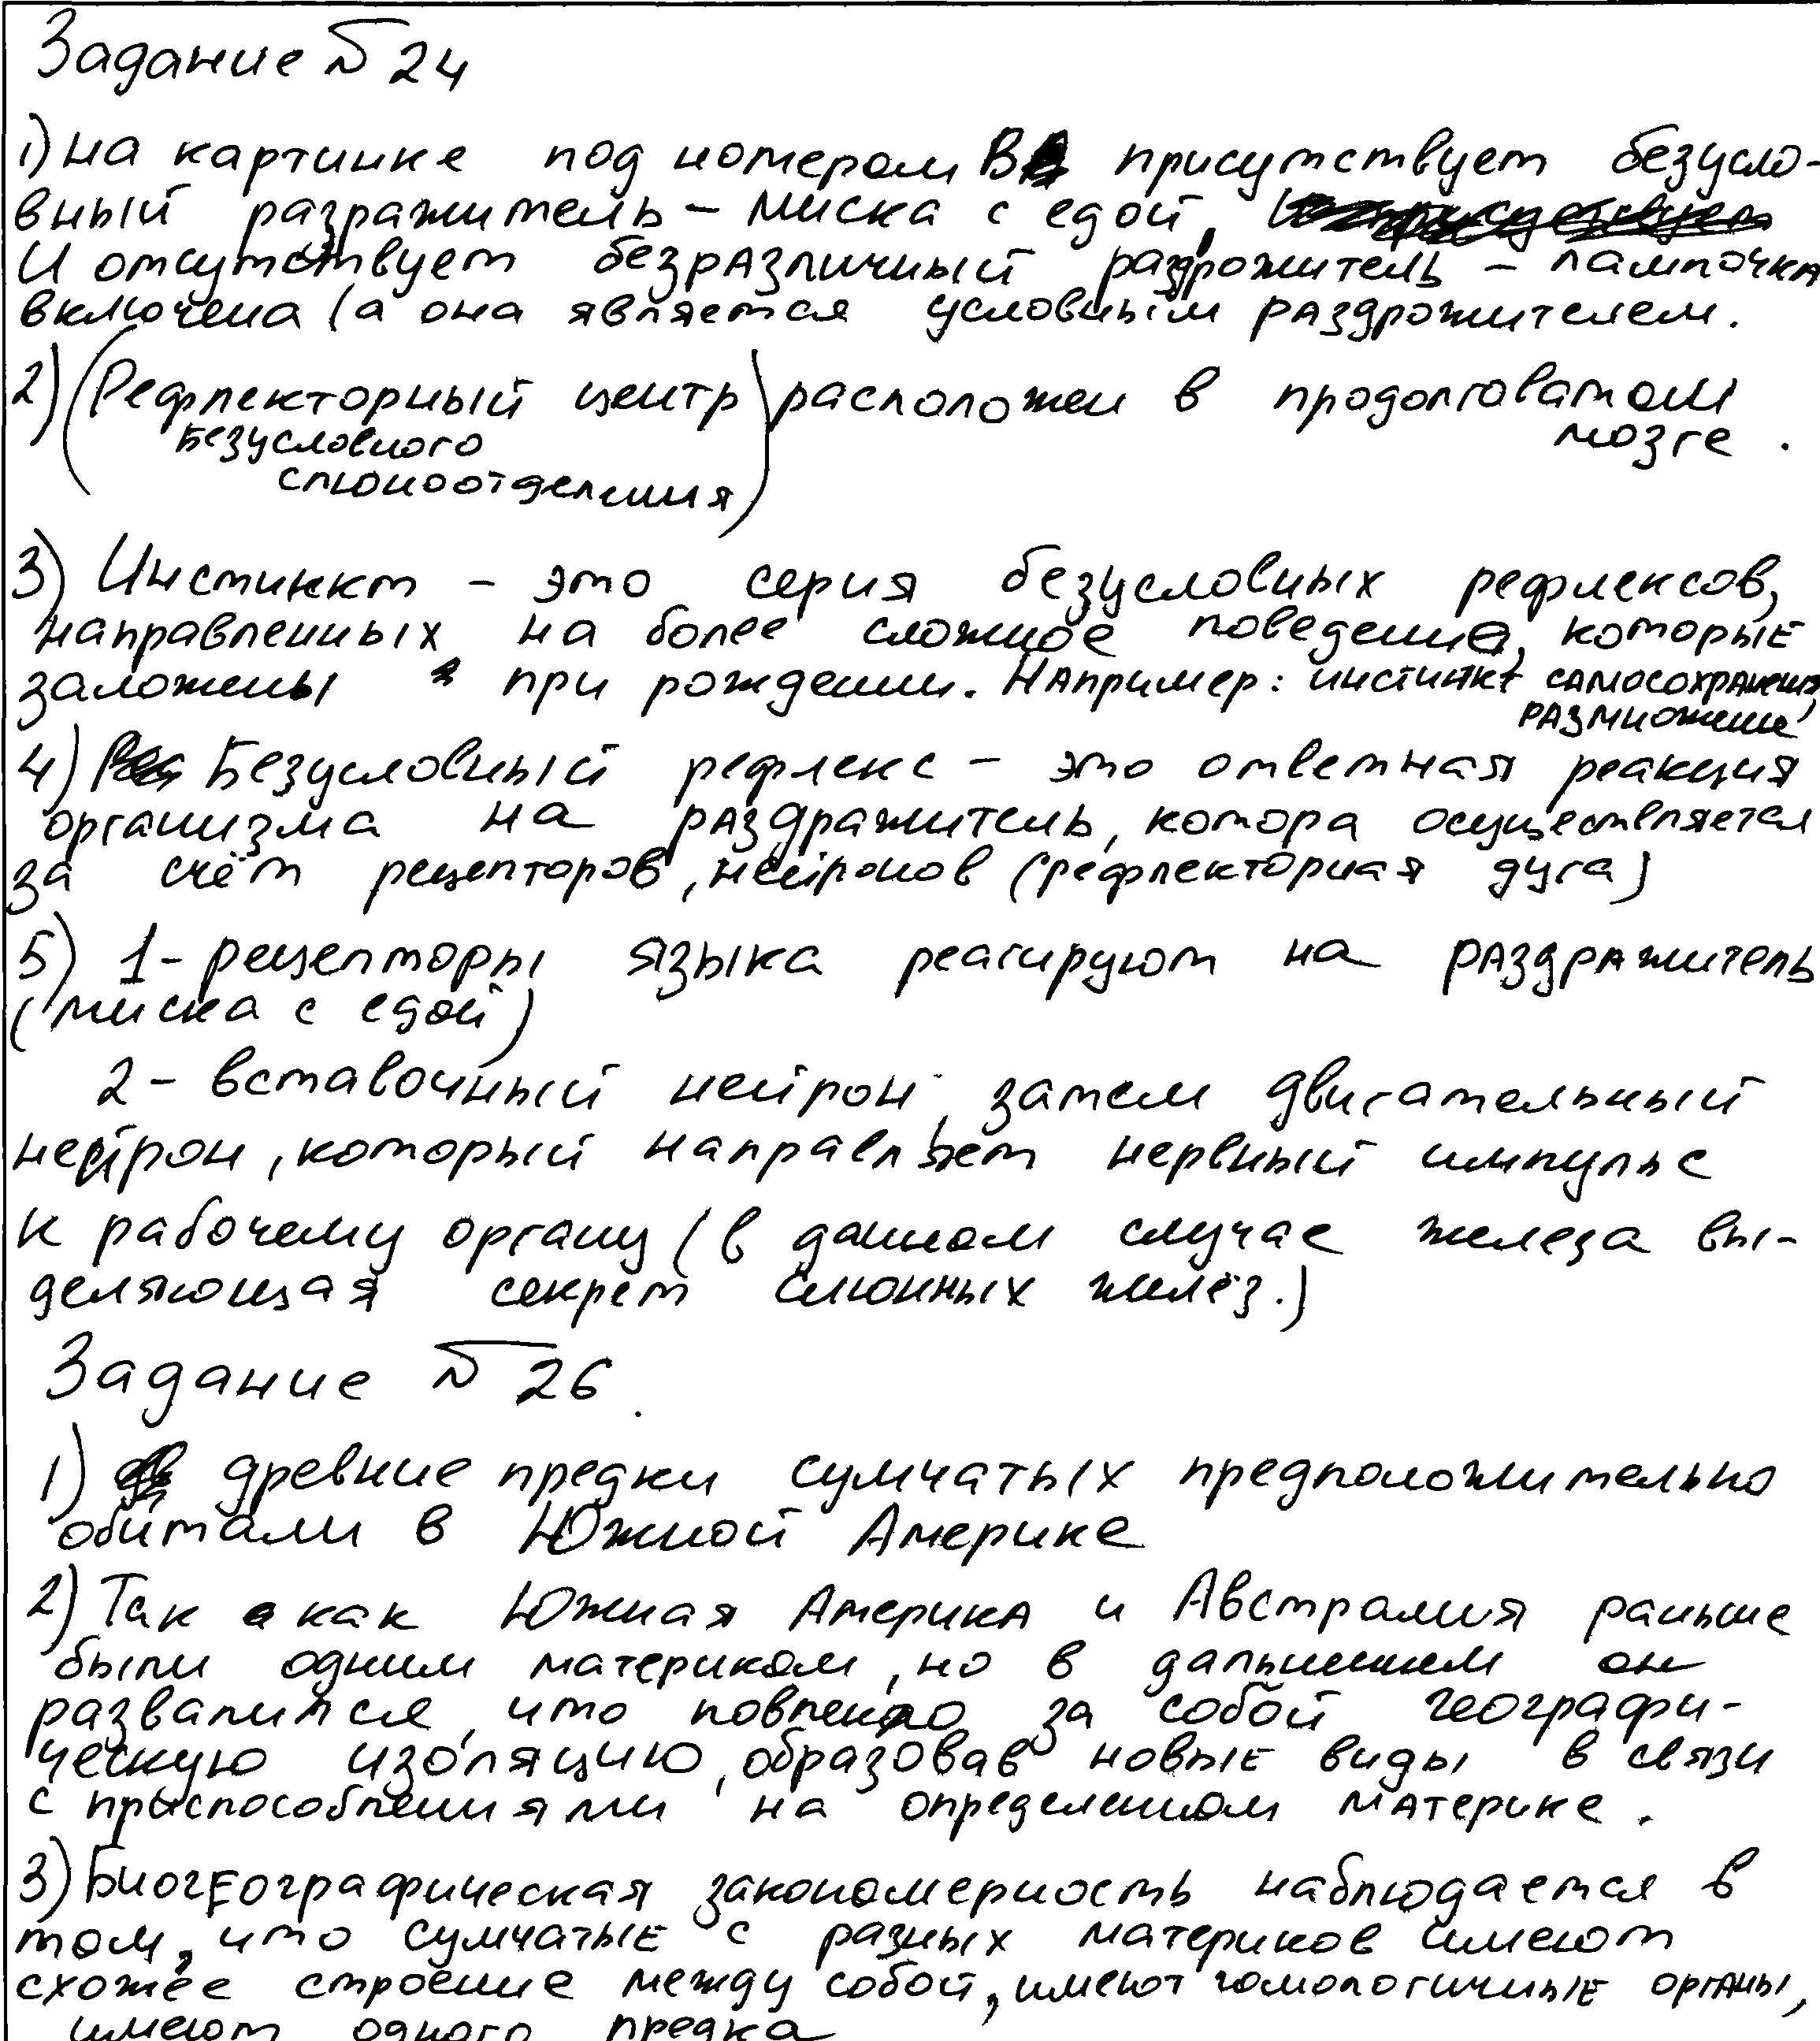 Задание № 24
1) на картинке под номером В присутствует безусло-
вный разражитель – миска с едой,
И отсутствует безразличный раздрожитель – лампочка
включена (а она является условным раздрожителем.
2) (Рефлекторный центр) расположен в продолговатом
безусловного мозге.
слюноотделения)
3) Инстинкт – это серия безусловных рефлексов,
направленных на более сложное поведение, которые
заложены при рождении. Например: инстинкт самосохранения,
размножение
4) Безусловный рефлекс – это ответная реакция
организма на раздражитель, котора осуществляется
за счёт рецепторов, нейронов (рефлекторная дуга)
5) 1 - рецепторы языка реагируют на раздражитель
(миска с едой)
2 - вставочный нейрон, затем двигательный
нейрон, который направляет нервный импульс
к рабочему органу (в данном случае железа вы-
деляющая секрет слюнных желёз.)
Задание № 26.
1) древние предки сумчатых предположительно
обитали в Южной Америке
2) Так как Южная Америка и Австралия раньше
были одним материком, но в дальнейшем он
развалился, что повлекло за собой географи-
ческую изоляцию, образовав новые виды в связи
с приспособлениями на определенном материке.
3) Биогеографическая закономерность наблюдается в
том, что сумчатые с разных материков имеют
схожее строение между собой, имеют гомологичные органы,
имеют одного предка